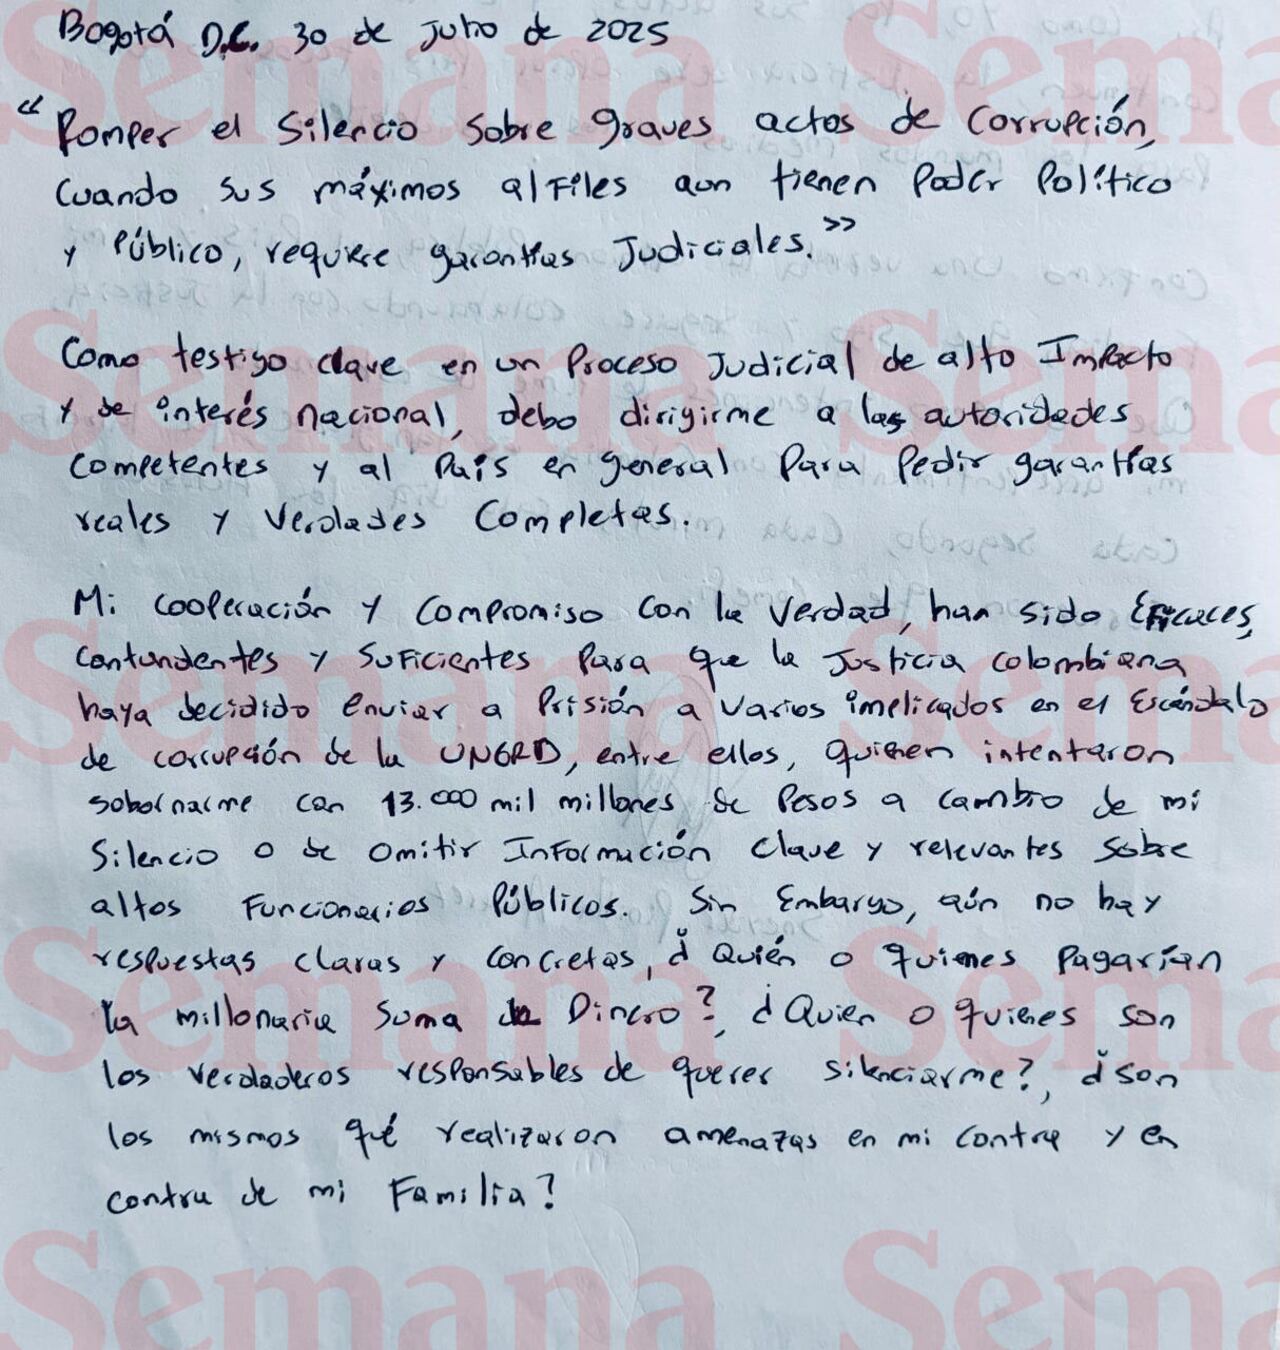 Bogotá D.C. 30 de Julio de 2025
"Romper el Silencio Sobre graves actos de Corrupción,
Cuando Sus máximos alfiles aun tienen Poder Político
y Público, requiere garantías Judiciales."
Como testigo clave en un Proceso Judicial de alto Impacto
y de interés nacional, debo dirigirme a las autoridades
Competentes y al País en general Para Pedir garantías
reales y Verdades Completas.
Mi cooperación y Compromiso Con la Verdad, han sido Eficaces,
Contundentes y Suficientes Para que la Justicia colombiana
haya decidido Enviar a Prisión a Varios implicados en el Escándalo
de corrupción de la UNGRD, entre ellos, quienen intentaron
sobornarme con 13.000 mil millones de Pesos a cambio de mi
Silencio o de omitir Información Clave y relevantes Sobre
altos Funcionarios Públicos. Sin Embargo, aún no hay
respuestas claras y concretas, ¿Quién o quienes Pagarían
la millonaria Suma de Dinero?, ¿Quien o quienes son
los Verdaderos responsables de querer silenciarme?, ¿son
los mismos qué realizaron amenazas en mi contra y en
contra de mi Familia?
Semana